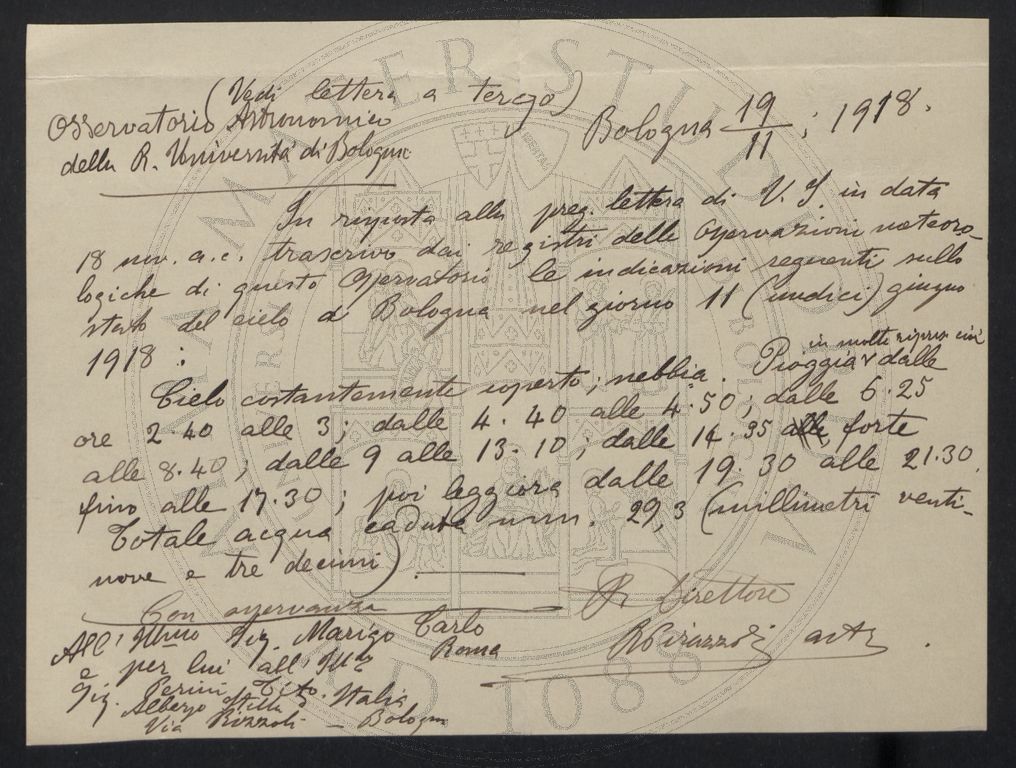 (Vedi lettera a tergo)
Osservatorio Astronomico
della R. Università di Bologna
Bologna 19/11; 1918.
In risposta alla preg. lettera di V. S. in data
18 nov. a. c. trascrivo dai registri delle osservazioni meteoro-
logiche di questo Osservatorio le indicazioni seguenti sullo
stato del cielo di Bologna nel giorno 11 (undici) giugno
1918:
in molte riprese cioè
Cielo costantemente coperto; nebbia. Pioggia dalle
ore 2.40 alle 3; dalle 4.40 alle 4.50; dalle 6.25
alle 8.40; dalle 9 alle 13.10; dalle 14.35 forte
fino alle 17.30; poi leggiera dalle 19.30 alle 21.30.
Totale acqua caduta mm. 29,3 (millimetri venti-
nove e tre decimi).
Con osservanza
Direttore
All' Illmo Sig. Marigo Carlo
Roma
e per lui all'
Sig. Perini Tito.
Albergo Stella d'Italia
Via Rizzoli – Bologna
R Pirazzoli
ALMA MATER STUDIORUM
A.D. 1088